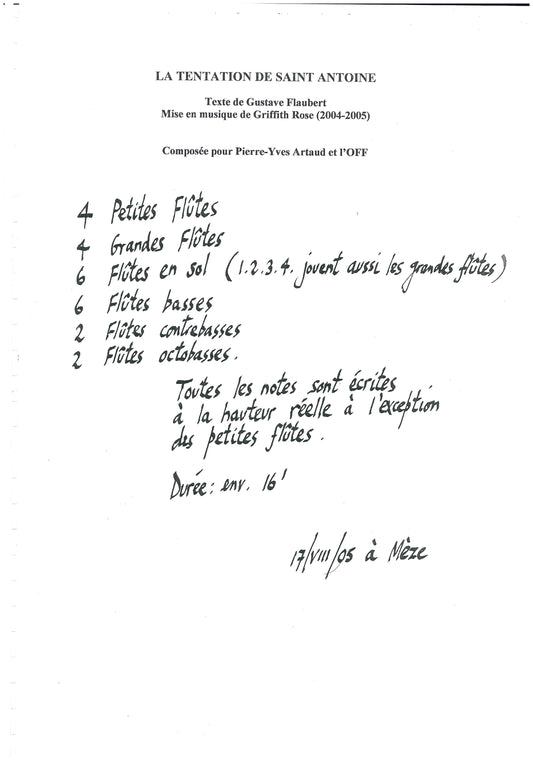 LA TENTATION DE SAINT ANTOINE
Texte de Gustave Flaubert
Mise en musique de Griffith Rose (2004-2005)
Composée pour Pierre-Yves Artaud et l'OFF
4 Petites Flûtes
4 Grandes Flûtes
6 Flûtes en sol (1.2.3.4. jouent aussi les grandes flûtes)
6 Flûtes basses
2 Flûtes contrebasses
2 Flûtes octobasses.
Toutes les notes sont écrites
à la hauteur réelle à l'exception
des petites flûtes.
Durée: env. 16'
17/VIII/05 à Mèze